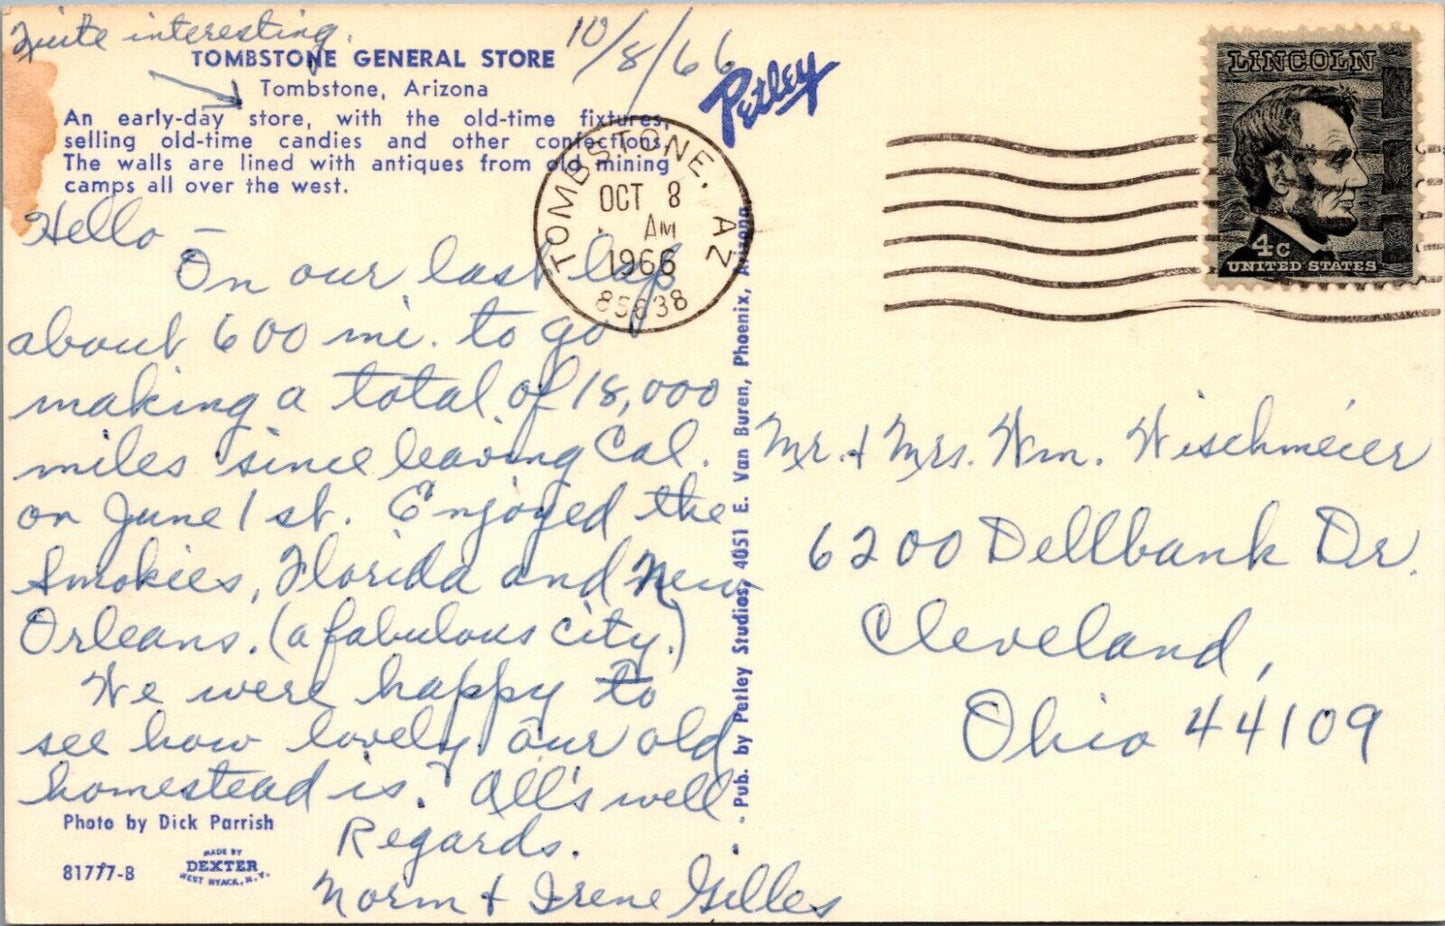 Quite interesting.
10/8/66
TOMBSTONE GENERAL STORE
Tombstone, Arizona
An early-day store, with the old-time fixtures,
selling old-time candies and other confections.
The walls are lined with antiques from old mining
camps all over the west.
Petley
TOMBSTONE, AZ
OCT 8
AM
1966
85638
LINCOLN
4c
UNITED STATES
Hello –
On our last lap
about 600 mi. to go
making a total of 18,000
miles since leaving Cal.
on June 1st. Enjoyed the
Smokies, Florida and New
Orleans. (a fabulous city.)
We were happy to
see how lovely our old
homestead is. All's well
Regards.
Norm & Irene Gilles
Photo by Dick Parrish
81777-B
MADE BY
DEXTER
WEST NYACK, N.Y.
Pub. by Petley Studios, 4051 E. Van Buren, Phoenix, Arizona
Mr. & Mrs. Wm. Wischmeier
6200 Dellbank Dr.
Cleveland,
Ohio 44109